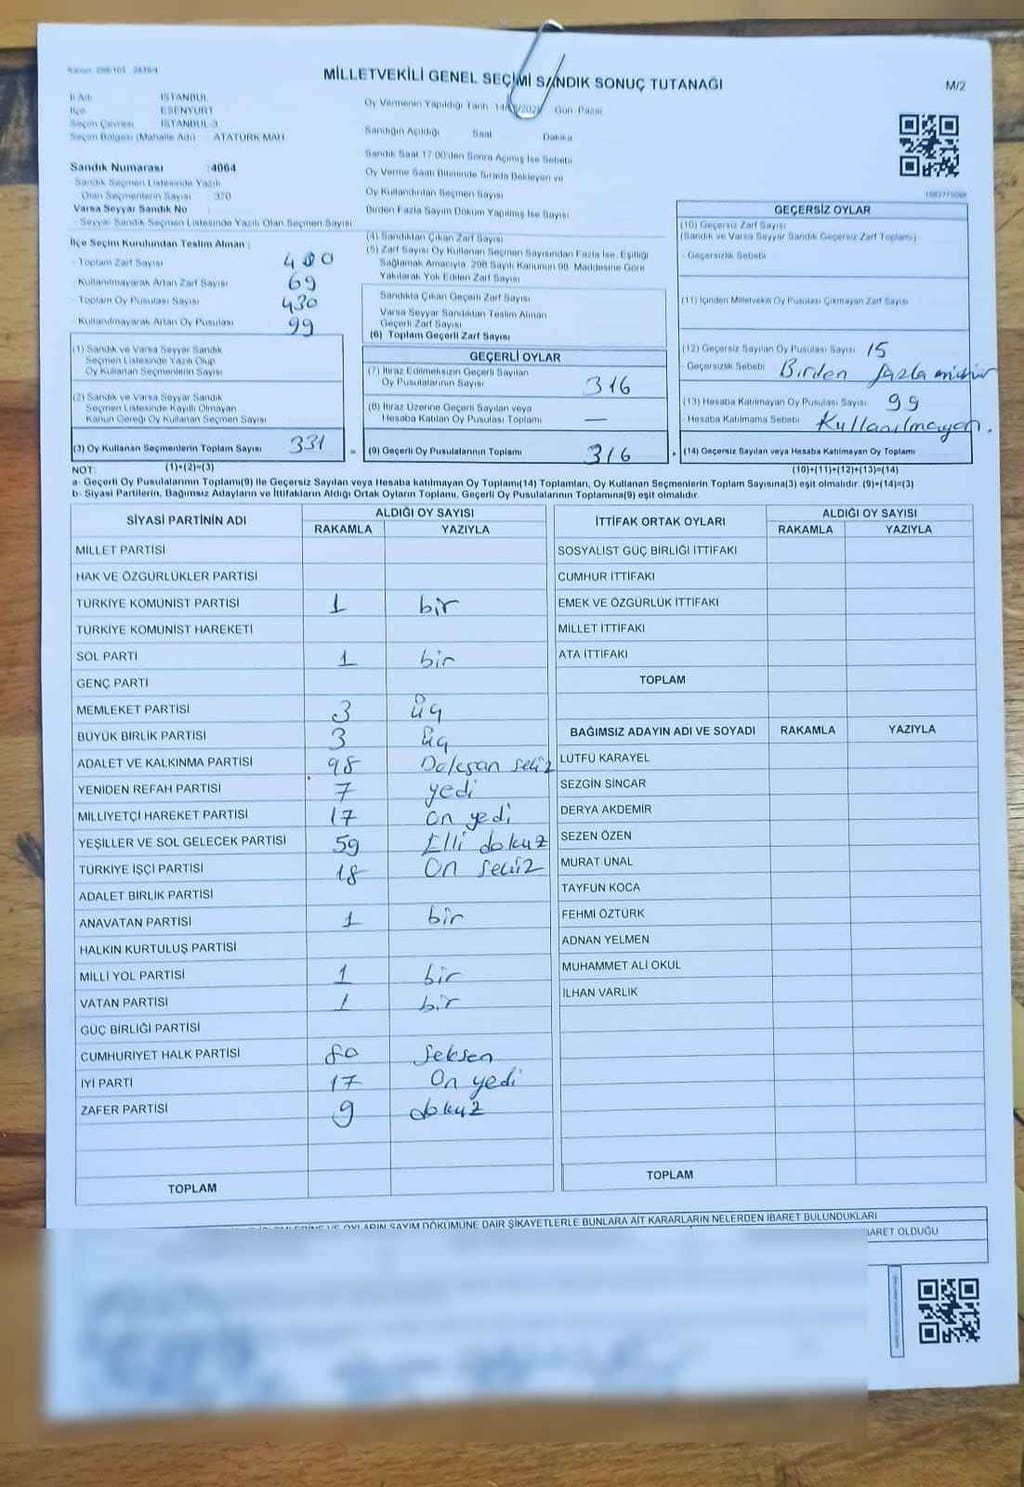 Kanun: 298/105 2839/4
MİLLETVEKİLİ GENEL SEÇİMİ SANDIK SONUÇ TUTANAĞI
M/2
İl Adı : İSTANBUL
İlçe : ESENYURT
Seçim Çevresi : İSTANBUL-3
Seçim Bölgesi (Mahalle Adı) : ATATÜRK MAH
Oy Vermenin Yapıldığı Tarih: 14/ Gün: Pazar
Sandığın Açıldığı Saat Dakika
Sandık Saat 17.00'den Sonra Açılmış İse Sebebi
Oy Verme Saati Bitiminde Sırada Bekleyen ve
Oy Kullandırılan Seçmen Sayısı
Birden Fazla Sayım Döküm Yapılmış İse Sayısı
Sandık Numarası :4064
Sandık Seçmen Listesinde Yazılı
Olan Seçmenlerin Sayısı : 370
Varsa Seyyar Sandık No
Seyyar Sandık Seçmen Listesinde Yazılı Olan Seçmen Sayısı
İlçe Seçim Kurulundan Teslim Alınan :
- Toplam Zarf Sayısı 400
- Kullanılmayarak Artan Zarf Sayısı 69
- Toplam Oy Pusulası Sayısı 430
- Kullanılmayarak Artan Oy Pusulası 99
(1) Sandık ve Varsa Seyyar Sandık
Seçmen Listesinde Yazılı Olup
Oy Kullanan Seçmenlerin Sayısı
(2) Sandık ve Varsa Seyyar Sandık
Seçmen Listesinde Kayıtlı Olmayan
Kanun Gereği Oy Kullanan Seçmen Sayısı
(3) Oy Kullanan Seçmenlerin Toplam Sayısı 331
(1)+(2)=(3)
(4) Sandıktan Çıkan Zarf Sayısı
(5) Zarf Sayısı Oy Kullanan Seçmen Sayısından Fazla İse, Eşitliği
Sağlamak Amacıyla, 298 Sayılı Kanunun 98. Maddesine Göre
Yakılarak Yok Edilen Zarf Sayısı
Sandıkta Çıkan Geçerli Zarf Sayısı
Varsa Seyyar Sandıktan Teslim Alınan
Geçerli Zarf Sayısı
(6) Toplam Geçerli Zarf Sayısı
GEÇERLİ OYLAR
(7) İtiraz Edilmeksizin Geçerli Sayılan
Oy Pusulalarının Sayısı 316
(8) İtiraz Üzerine Geçerli Sayılan veya
Hesaba Katılan Oy Pusulası Toplamı —
= (9) Geçerli Oy Pusulalarının Toplamı 316
GEÇERSİZ OYLAR
(10) Geçersiz Zarf Sayısı
(Sandık ve Varsa Seyyar Sandık Geçersiz Zarf Toplamı)
- Geçersizlik Sebebi:
(11) İçinden Milletvekili Oy Pusulası Çıkmayan Zarf Sayısı
(12) Geçersiz Sayılan Oy Pusulası Sayısı 15
- Geçersizlik Sebebi: Birden fazla mühür
(13) Hesaba Katılmayan Oy Pusulası Sayısı 99
- Hesaba Katılmama Sebebi: Kullanılmayan.
+ (14) Geçersiz Sayılan veya Hesaba Katılmayan Oy Toplamı
(10)+(11)+(12)+(13)=(14)
NOT:
a- Geçerli Oy Pusulalarının Toplamı(9) ile Geçersiz Sayılan veya Hesaba katılmayan Oy Toplamı(14) Toplamları, Oy Kullanan Seçmenlerin Toplam Sayısına(3) eşit olmalıdır. (9)+(14)=(3)
b- Siyasi Partilerin, Bağımsız Adayların ve İttifakların Aldığı Ortak Oyların Toplamı, Geçerli Oy Pusulalarının Toplamına(9) eşit olmalıdır.
SİYASİ PARTİNİN ADI
ALDIĞI OY SAYISI
RAKAMLA YAZIYLA
MİLLET PARTİSİ
HAK VE ÖZGÜRLÜKLER PARTİSİ
TÜRKİYE KOMÜNİST PARTİSİ 1 bir
TÜRKİYE KOMÜNİST HAREKETİ
SOL PARTİ 1 bir
GENÇ PARTİ
MEMLEKET PARTİSİ 3 üç
BÜYÜK BİRLİK PARTİSİ 3 üç
ADALET VE KALKINMA PARTİSİ 98 Doksan sekiz
YENİDEN REFAH PARTİSİ 7 yedi
MİLLİYETÇİ HAREKET PARTİSİ 17 on yedi
YEŞİLLER VE SOL GELECEK PARTİSİ 59 Elli dokuz
TÜRKİYE İŞÇİ PARTİSİ 18 On sekiz
ADALET BİRLİK PARTİSİ
ANAVATAN PARTİSİ 1 bir
HALKIN KURTULUŞ PARTİSİ
MİLLİ YOL PARTİSİ 1 bir
VATAN PARTİSİ 1 bir
GÜÇ BİRLİĞİ PARTİSİ
CUMHURİYET HALK PARTİSİ 80 Seksen
İYİ PARTİ 17 On yedi
ZAFER PARTİSİ 9 dokuz
TOPLAM
İTTİFAK ORTAK OYLARI
ALDIĞI OY SAYISI
RAKAMLA YAZIYLA
SOSYALİST GÜÇ BİRLİĞİ İTTİFAKI
CUMHUR İTTİFAKI
EMEK VE ÖZGÜRLÜK İTTİFAKI
MİLLET İTTİFAKI
ATA İTTİFAKI
TOPLAM
BAĞIMSIZ ADAYIN ADI VE SOYADI RAKAMLA YAZIYLA
LÜTFÜ KARAYEL
SEZGİN SİNCAR
DERYA AKDEMİR
SEZEN ÖZEN
MURAT ÜNAL
TAYFUN KOCA
FEHMİ ÖZTÜRK
ADNAN YELMEN
MUHAMMET ALİ OKUL
İLHAN VARLIK
TOPLAM
VE OYLARIN SAYIM DÖKÜMÜNE DAİR ŞİKAYETLERLE BUNLARA AİT KARARLARIN NELERDEN İBARET BULUNDUKLARI
İBARET OLDUĞU